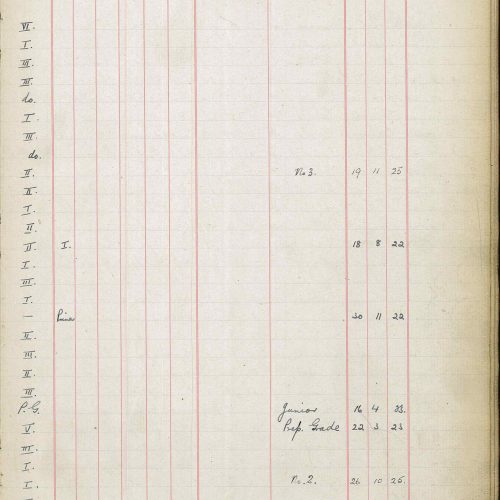 VI.
I.
III.
III.
do.
I.
III.
do.
II. No 3. 19 11 25
II.
I.
II.
II. I. 18 8 22
I.
III.
I.
— 30 11 22
II.
III.
II.
III.
P.G. Junior 16 4 23.
V. Prep. Grade 22 3 23
III.
I.
I. No. 2. 26 10 25.